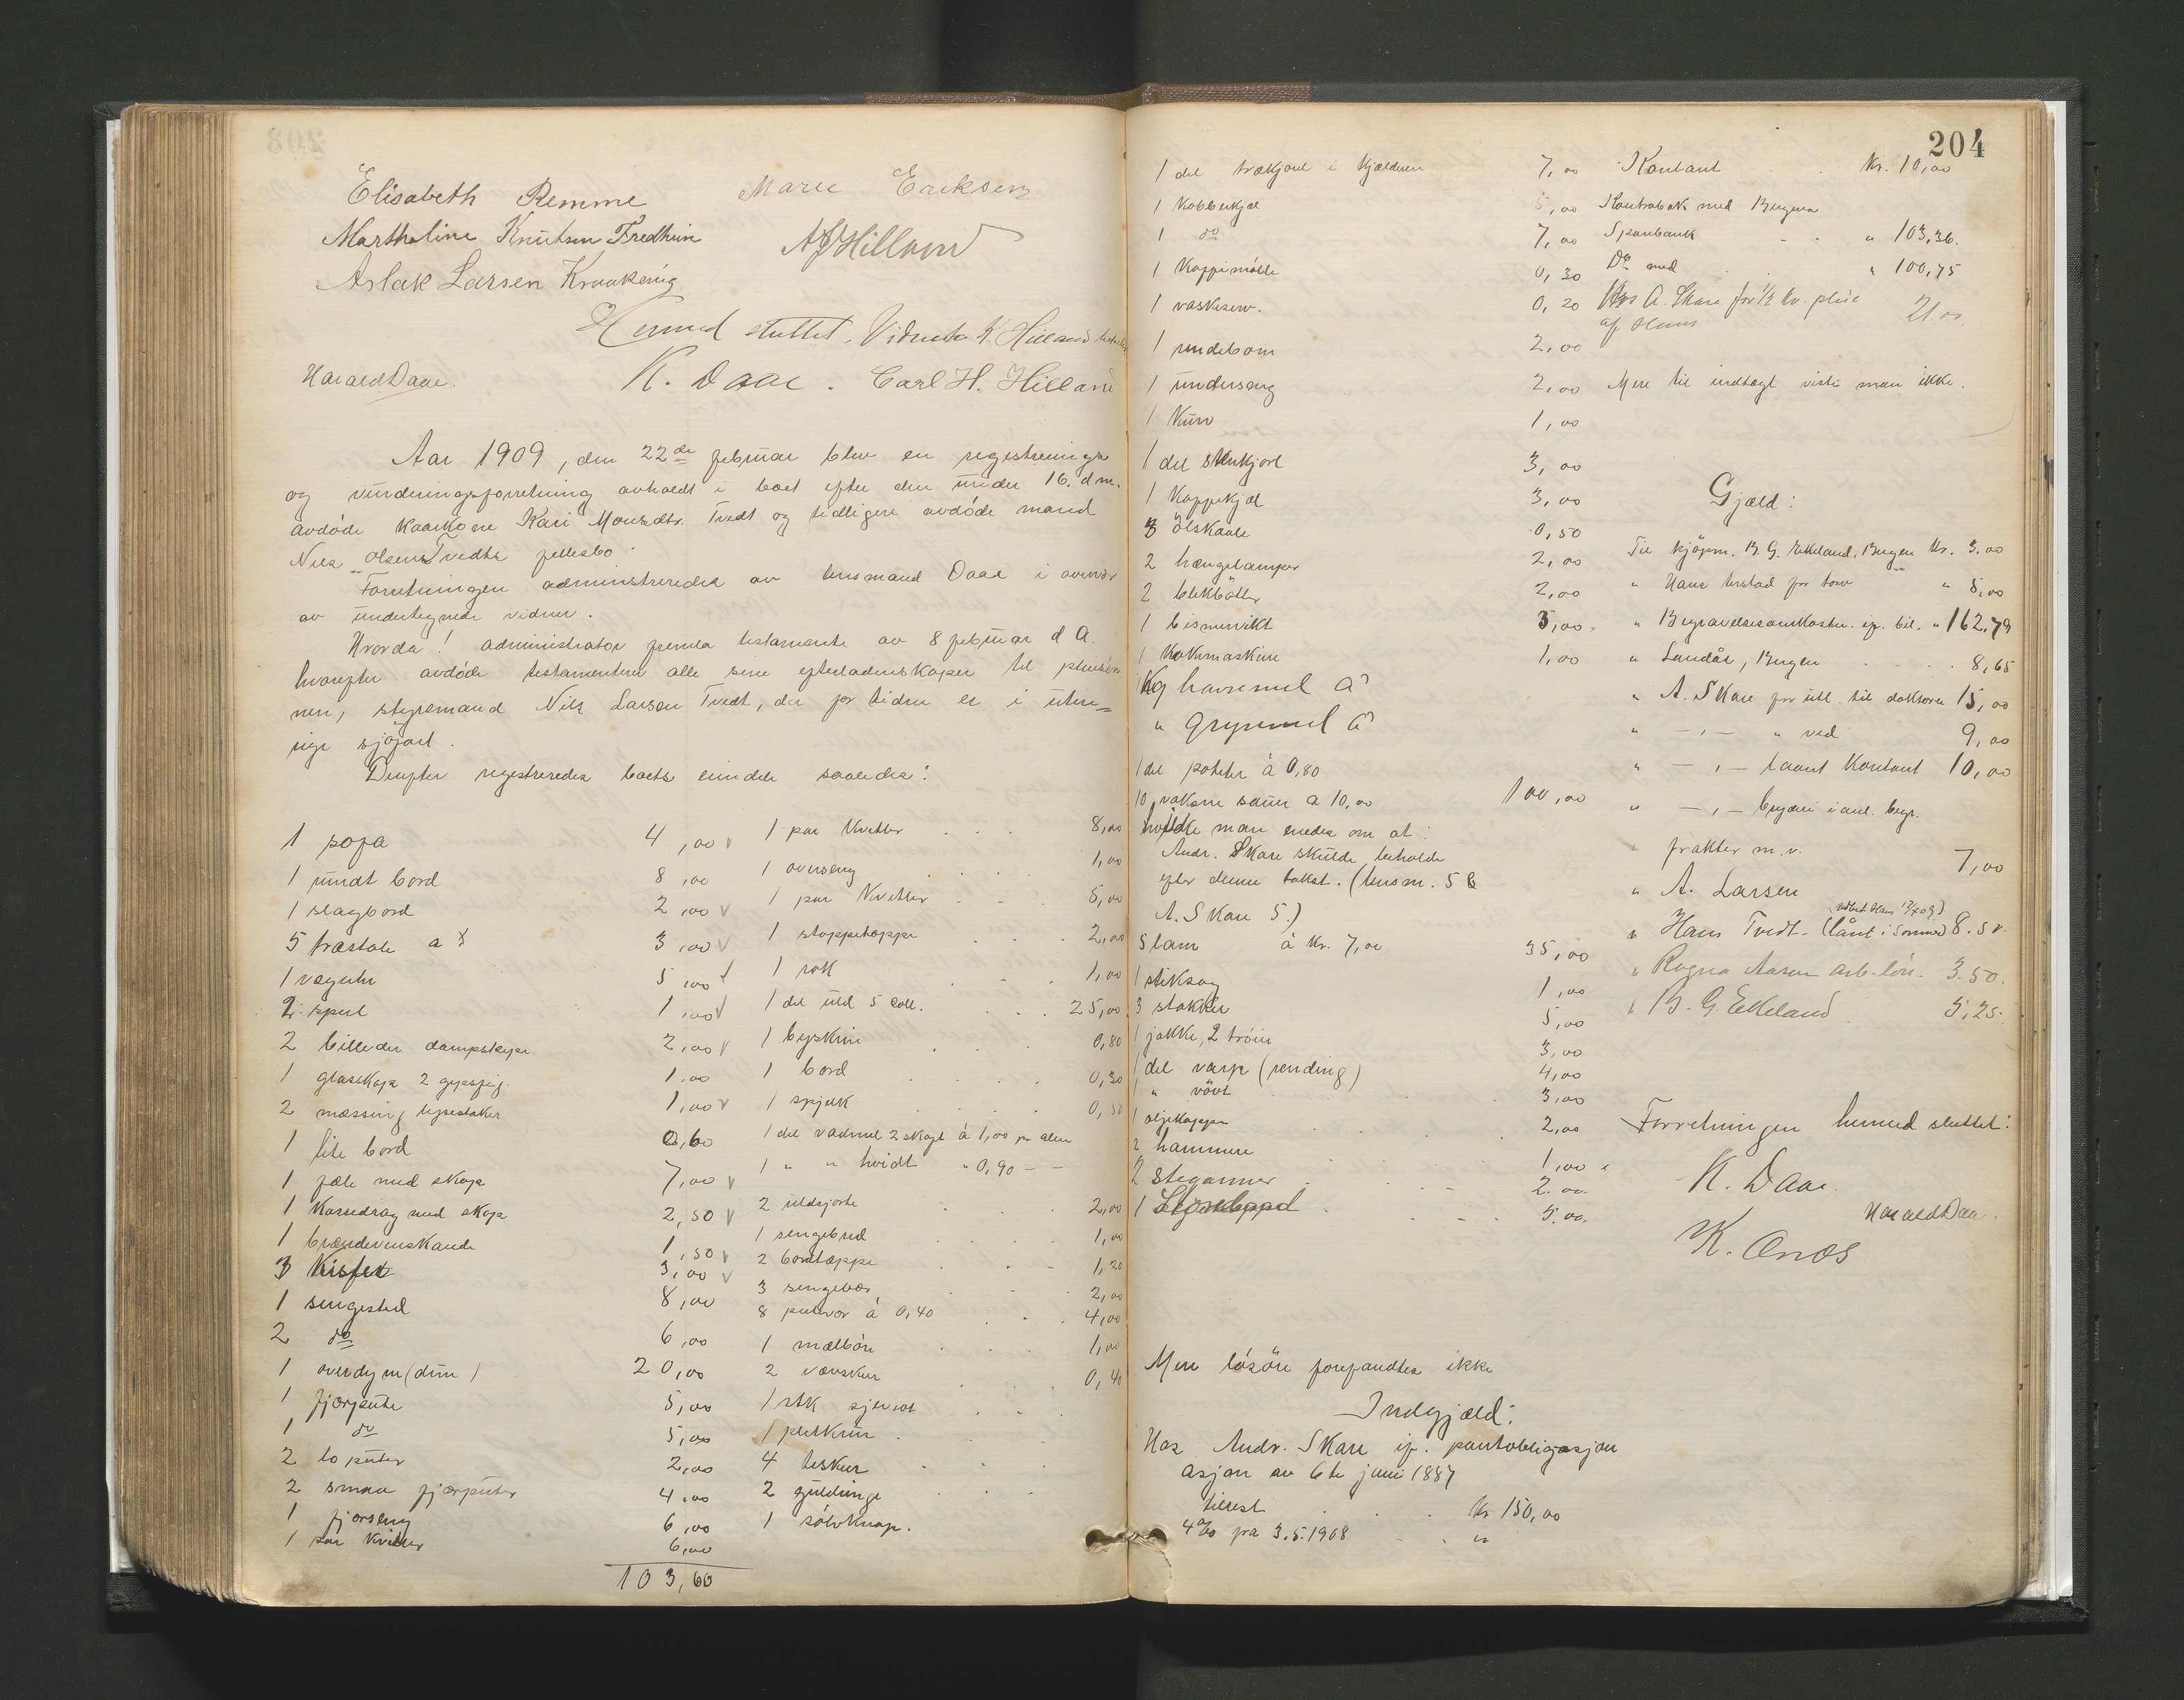 204
Elisabeth Remme
Marie Eriksen
Marthaline Knutsen Fredheim
Aslak Larsen Kraakenig
Hermed sluttet. Vidnerne K. Hilland
Harald Daae.
K. Daae. Carl H. Hilland
Aar 1909, den 22de februar blev en registrerings
og vurderingsforretning avholdt i boet efter den under 16. d m.
avdøde kaarkone Kari Monsdtr. Tvedt og tidligere avdøde mand
Nils Olsen Tvedts fellesbo.
Forretningen administreredes av lensmand Daae i overvær
av undertegnede vidner.
Hvorda! administrator fremla testamente av 8 februar d A.
hvorefter avdøde testamenterer alle sine efterladenskaper til pleiesøn
nen, styremand Nils Larsen Tvedt, der for tiden er i uten=
rigs sjøfart.
Derefter registreredes boets eiendele saaledes:
1 sofa 4,00
1 rundt bord 8,00
1 slagbord 2,00
5 træstole a 3,00
1 væguhr 5,00
2 speil 1,00
2 billeder dampskepe 2,00
1 glaskop 2 gypsfig. 1,00
2 messing lysestaker 1,00
1 lite bord 0,60
1 fæle med skap 7,00
1 Kassedrag med skap 2,50
1 brændevinskande 1,50
3 kister 3,00
1 sengested 8,00
2 do 6,00
1 overdyne (dun) 20,00
1 fjærpute 5,00
1 do 5,00
2 to puter 2,00
2 smaa fjærputer 4,00
1 fjærseng 6,00
1 par kvitler 6,00
103,60
1 par Kvitler 8,00
1 overseng 1,00
1 par Kvitler 5,00
1 stoppeteppe 2,00
1 rok 1,00
1 del uld 5 25,00
1 byskrin 0,80
1 bord 0,30
1 spjelk 0,50
1 del vadmel 2 skapt á 1,00 pr alen
1 " " hvidt " 0,90 - -
2 uldsjorte 2,00
1 sengebred 1,00
2 bordtæppe 1,20
3 sengevær 2,00
8 putevor á 0,40 4,00
1 mælbøre 1,00
2 0,40
1 stk
1
4 teskeer
2 guldringe
1 sølvknap.
1 del trækjørel i kjælderen 7,00
1 Kobberkjel 5,00
1 do 7,00
1 Kaffimølle 0,30
1 vaskeserv. 0,20
1 rendebom 2,00
1 underseng 2,00
1 Kurv 1,00
1 del stenkjørl 3,00
1 Kaffekjel 3,00
3 ølskaale 0,50
2 hængelamper 2,00
2 blekbøtter 2,00
1 bismervikt 5,00
1 Kokemaskine 1,00
1 Kg havremel á
" grynmel á
1 del poteter á 0,80
10 voksne sauer a 10,00 100,00
hvilke man enedes om at
Andr. Skare skulde beholde
efter denne takst. (lensm. 5 &
A. Skare 5.)
5 lam á Kr. 7,00 35,00
1 stiksag 1,00
3 stakker 5,00
1 jakke, 2 trøier 3,00
1 del varp (rending) 4,00
1 " vövt 3,00
1 oljekappe 2,00
2 hammere 1,00
2 stegpanner 2.00.
1 5.00.
Mere løsøre forefandtes ikke
Indgjæld:
Hos Andr. Skare if. pantobligasjon
asjon av 6te juni 1887
tilrest Kr 150,00
4% fra 3.5.1908 "
Kontant Kr. 10,00
Kontrabok med Bergens
Sparebank " 103,36.
Do med " 100,75
Hos A. Skare for 1/2
af Huus 21 00
Mere til indtægt viste man ikke.
Gjæld:
Til kjøpm. B. G. Ekeland, Bergen Kr. 3.00
" Hans for torv " 5,00
" Begravelsesomkostn. if. bil. " 162,79
" Landås, Bergen 8,65
" A. Skare for utl. til doktoren 15,00
" - " - " ved 9,00
" - " - laant Kontant 10,00
" - " - i anl. begr.
frakter m.v. 7,00
" A. Larsen
" Hans Tvedt - (lånt i sommer) 8.50
" Ragna Aasen arb. løn. 3.50.
" B. G. Ekeland 5,25.
Forretningen hermed sluttet:
K. Daae.
Harald Daae.
K. Onæs